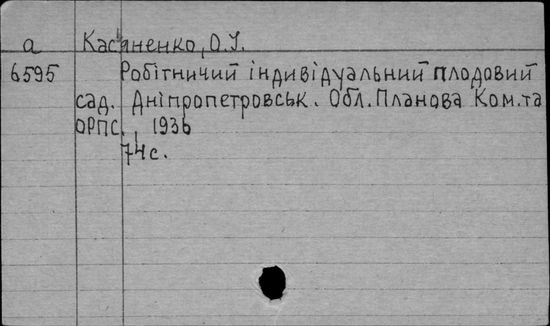 а Касяненко, О.І.
6595 Робітничий індивідуальний плодовий
сад. Дніпропетровськ. Обл. Планова Ком. та
ОРПС., 1936
74с.